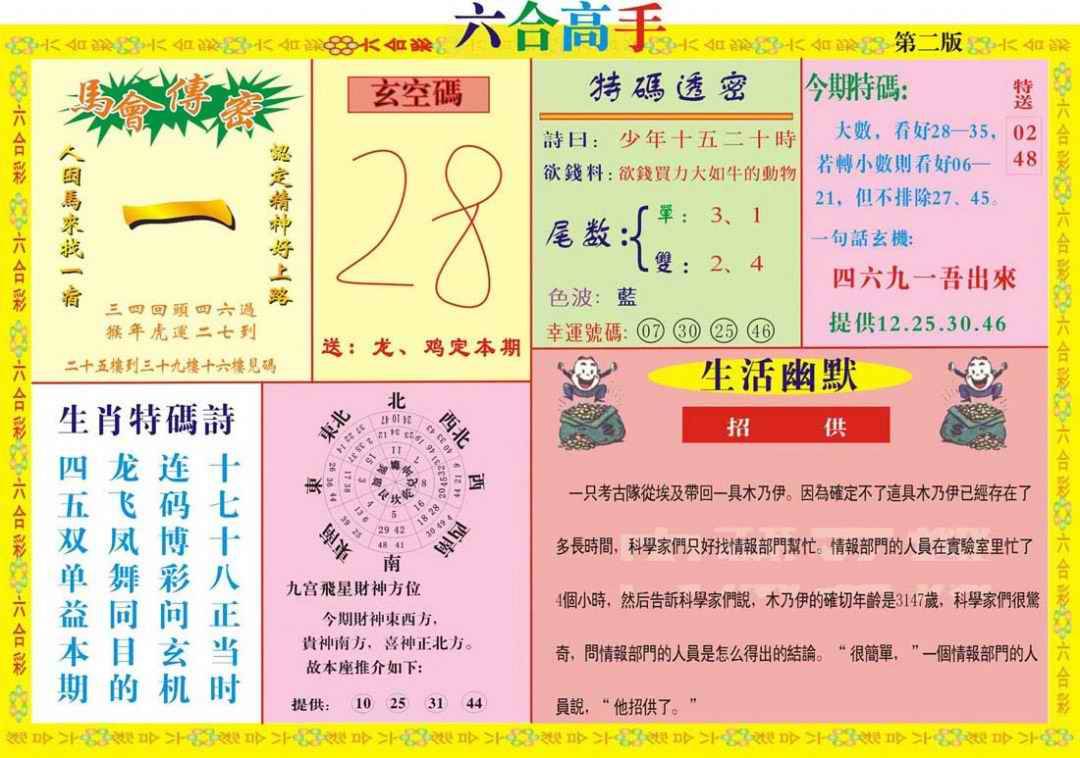 六合高手
第二版
馬會傳密
人因馬來找一宿
一
認定精神好上路
三四回頭四六過
猴年虎運二七到
二十五樓到三十九樓十六樓見碼
玄空碼
28
送：龙、鸡定本期
特碼透密
詩曰：少年十五二十時
欲錢料：欲錢買力大如牛的動物
尾数：
單：3、1
雙：2、4
色波：藍
幸運號碼：07 30 25 46
今期特碼:
特送
02
48
大數，看好28—35，
若轉小數則看好06—
21，但不排除27、45。
一句話玄機:
四六九一吾出來
提供12.25.30.46
生肖特碼詩
十七十八正当时
连码博彩问玄机
龙飞凤舞同目的
四五双单益本期
北
東北
西北
東
西
東南
西南
南
九宫飛星財神方位
今期財神東西方，
貴神南方，喜神正北方。
故本座推介如下:
提供: 10 25 31 44
生活幽默
招供
一只考古隊從埃及帶回一具木乃伊。因為確定不了這具木乃伊已經存在了
多長時間，科學家們只好找情報部門幫忙。情報部門的人員在實驗室里忙了
4個小時，然后告訴科學家們說，木乃伊的確切年齡是3147歲，科學家們很驚
奇，問情報部門的人員是怎么得出的結論。“很簡單，”一個情報部門的人
員說，“他招供了。”